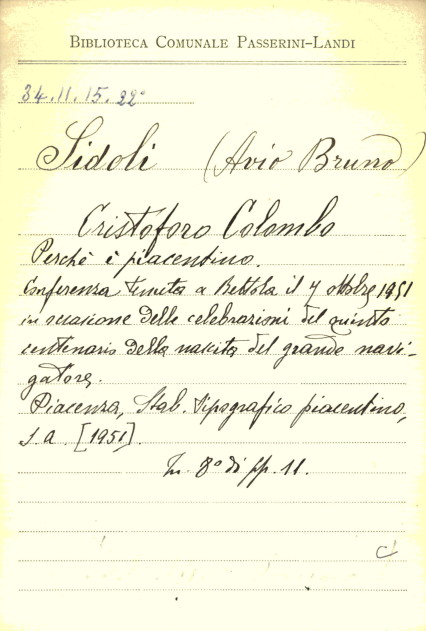 BIBLIOTECA COMUNALE PASSERINI-LANDI
34.11.15.22°
Sidoli (Avio Bruno)
Cristoforo Colombo
Perchè è piacentino.
Conferenza tenuta a Bettola il 7 ottobre 1951
in occasione delle celebrazioni del quinto
centenario della nascita del grande navi-
gatore.
Piacenza, Stab. Tipografico piacentino,
s.a. [1951].
In 8° di pp. 11.